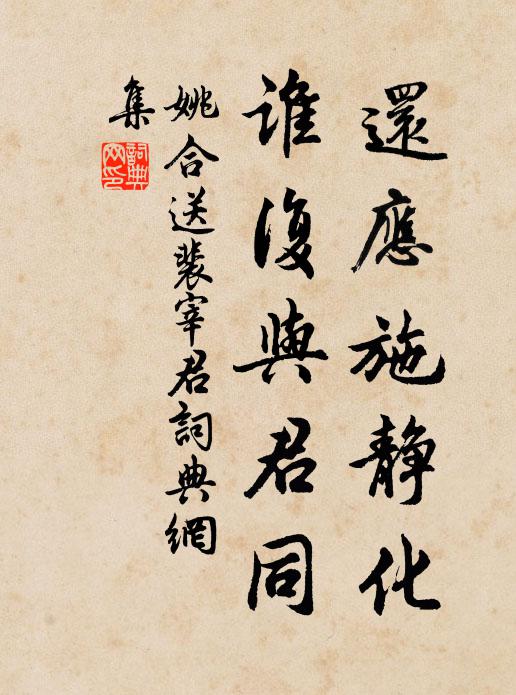 還應施靜化
誰復與君同
姚合送裴宰君詞典網
集
詞典
网印